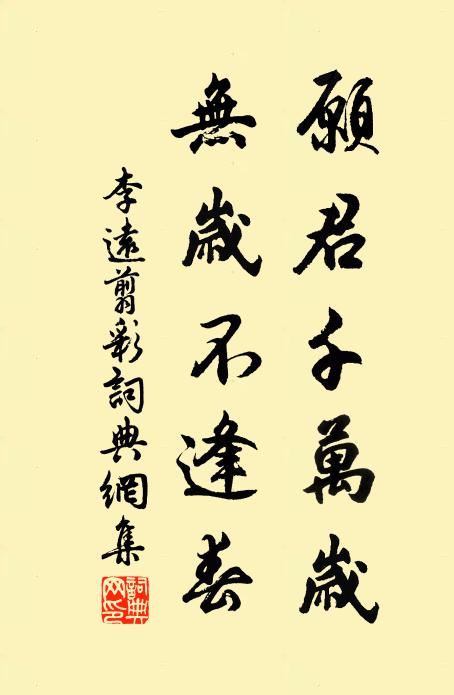 願君千萬歲
無歲不逢春
李遠翦彩詞典網集
詞典
网印